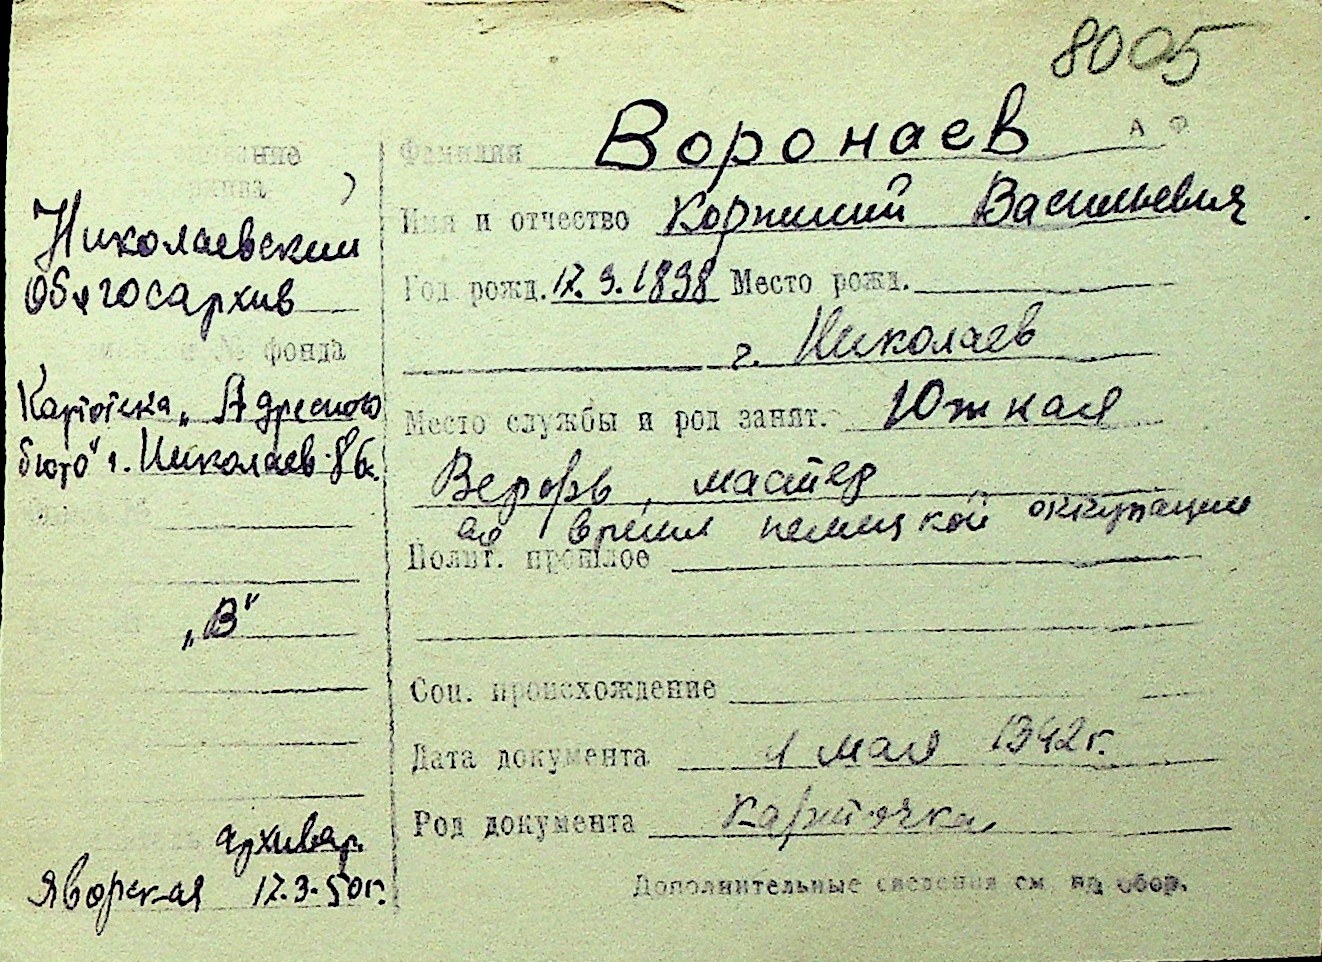 8005
А Ф
Фамилия Воронаев
Имя и отчество Корнилий Васильевич
Год рожд. 17.9.1898 Место рожд.
г. Николаев
Место службы и род занят. Южная
Верфь, мастер
во время немецкой оккупации
Полит. прошлое
Соц. происхождение
Дата документа 1 мая 1942 г.
Род документа Карточка
Дополнительные сведения см. на обор.
Николаевский
Облгосархив
№ фонда
Картотека "Адресного
бюро" г. Николаев
"В"
архивар.
Яворская 17.3.50 г.